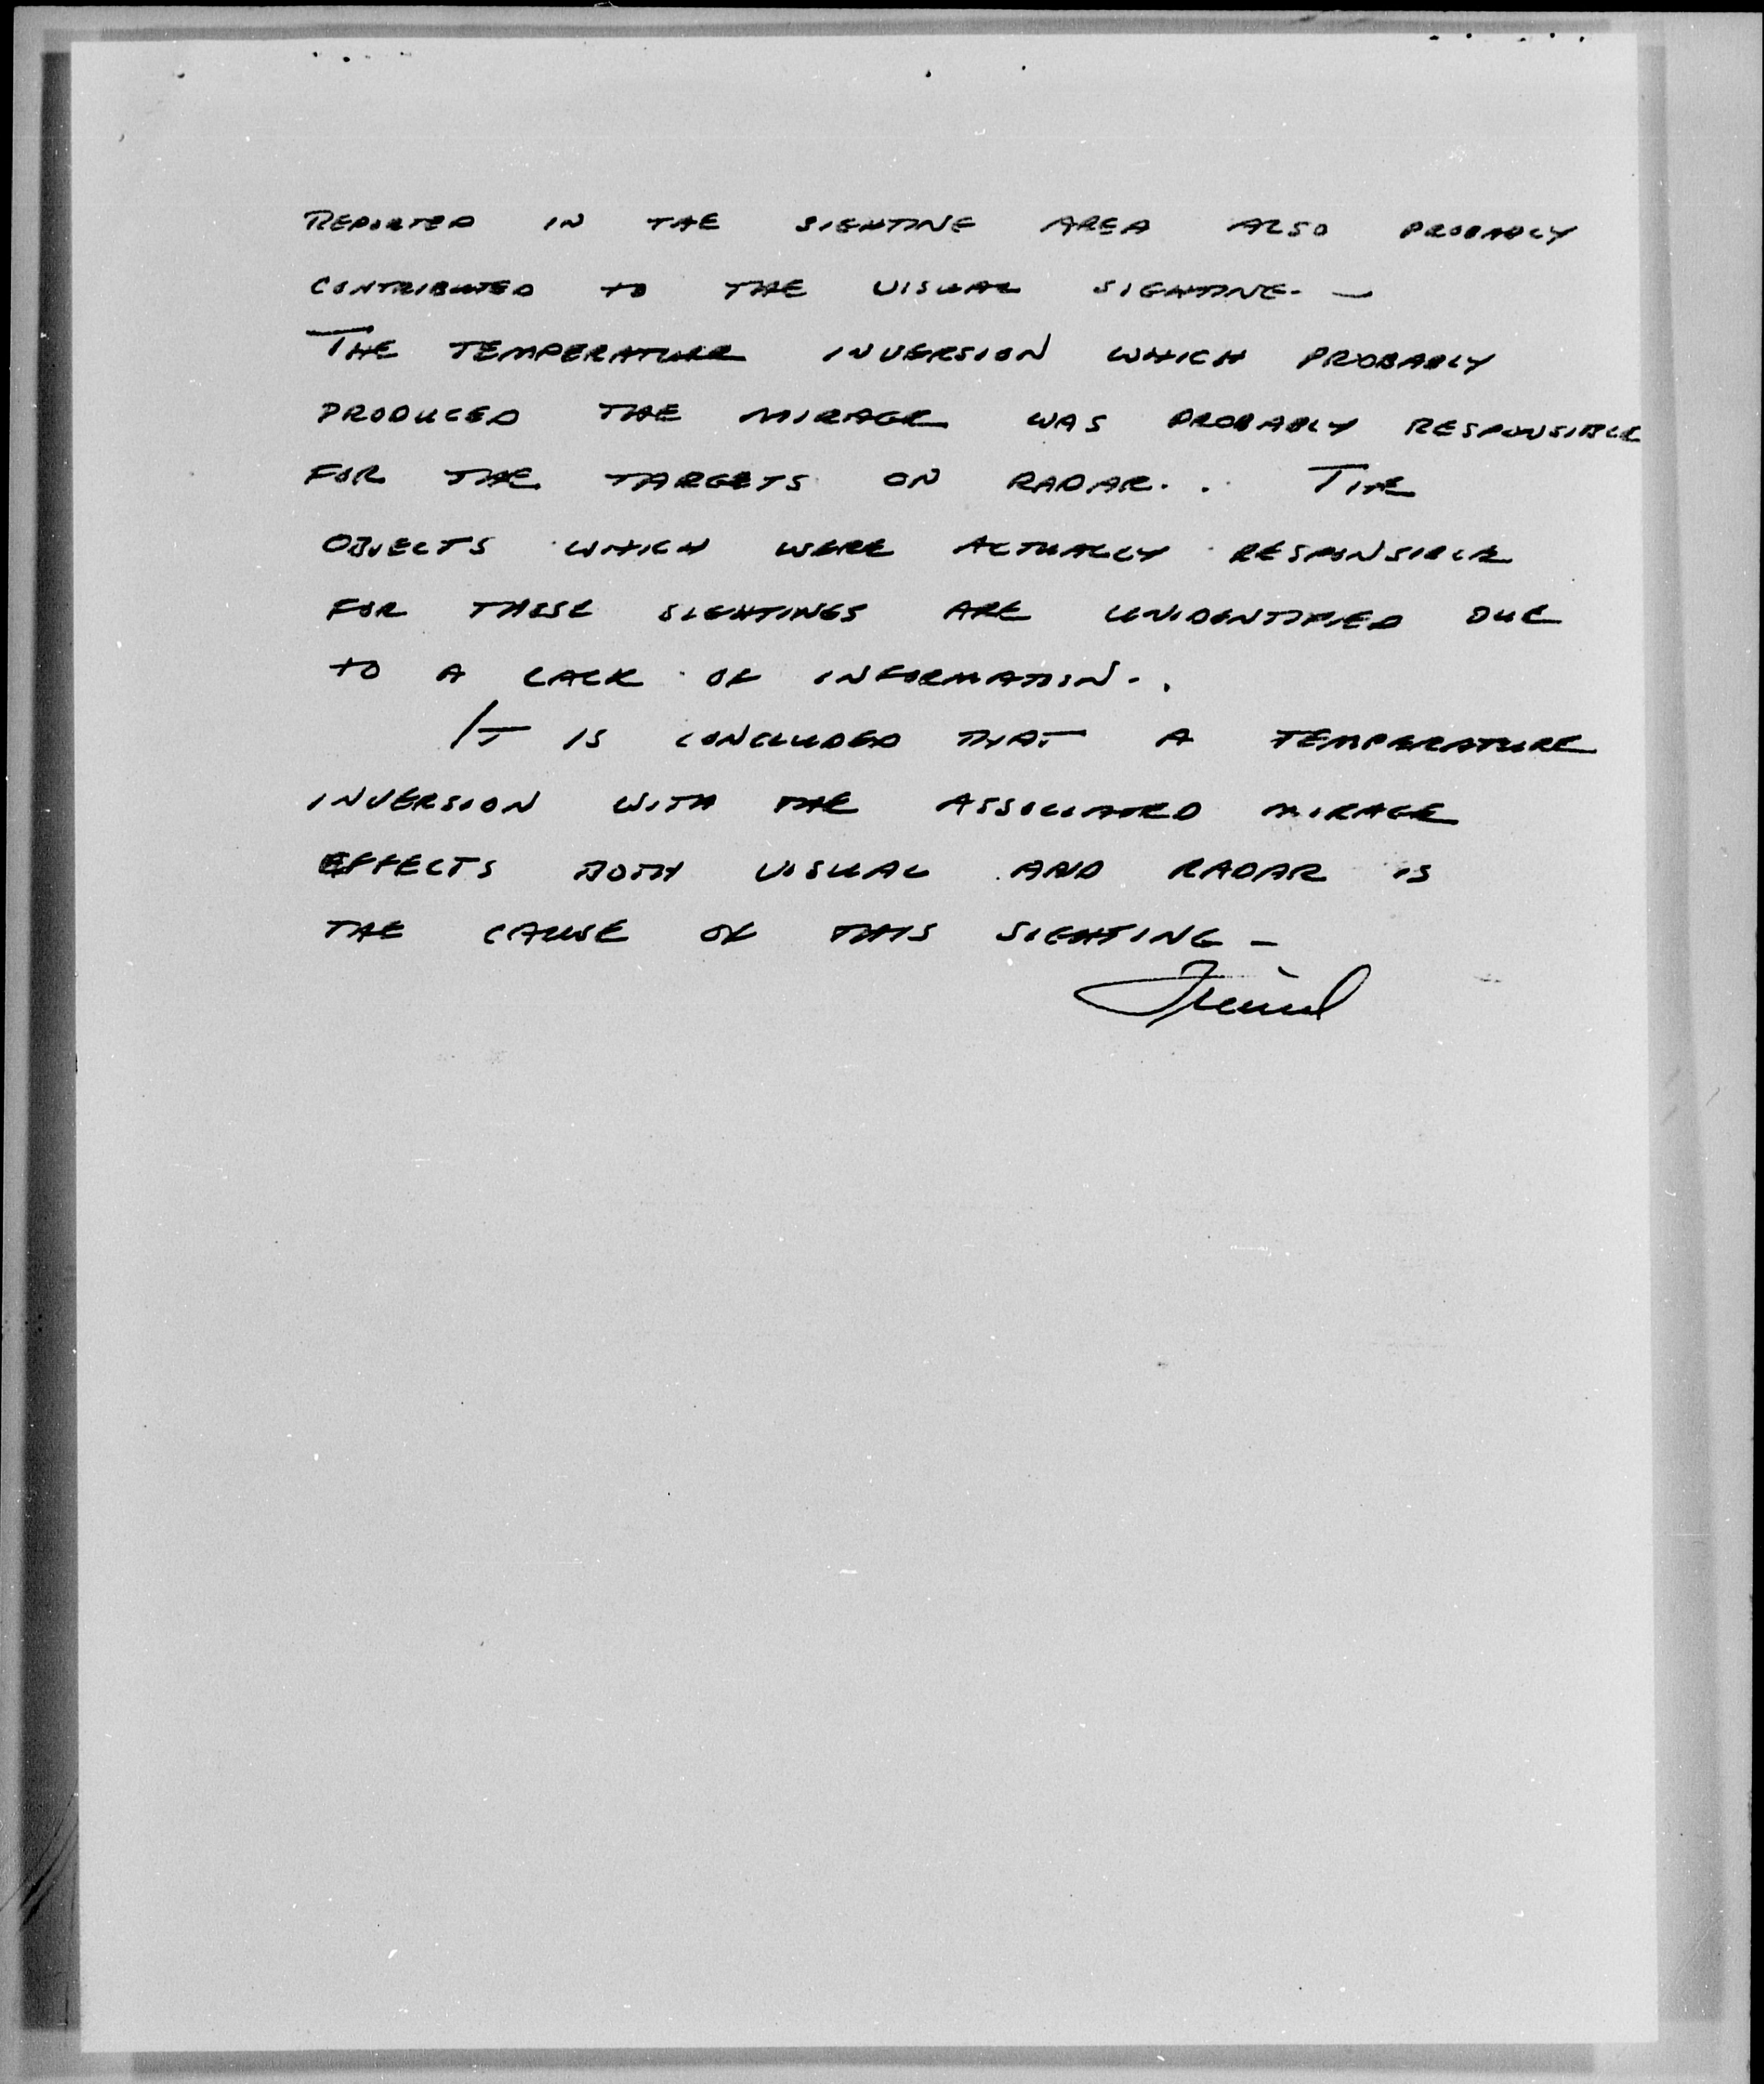 REPORTED IN THE SIGHTING AREA ALSO PROBABLY
CONTRIBUTED TO THE VISUAL SIGHTING. —
THE TEMPERATURE INVERSION WHICH PROBABLY
PRODUCED THE MIRAGE WAS PROBABLY RESPONSIBLE
FOR THE TARGETS ON RADAR. . THE
OBJECTS WHICH WERE ACTUALLY RESPONSIBLE
FOR THESE SIGHTINGS ARE UNIDENTIFIED DUE
TO A LACK OF INFORMATION. .
IT IS CONCLUDED THAT A TEMPERATURE
INVERSION WITH THE ASSOCIATED MIRAGE
EFFECTS BOTH VISUAL AND RADAR IS
THE CAUSE OF THIS SIGHTING —